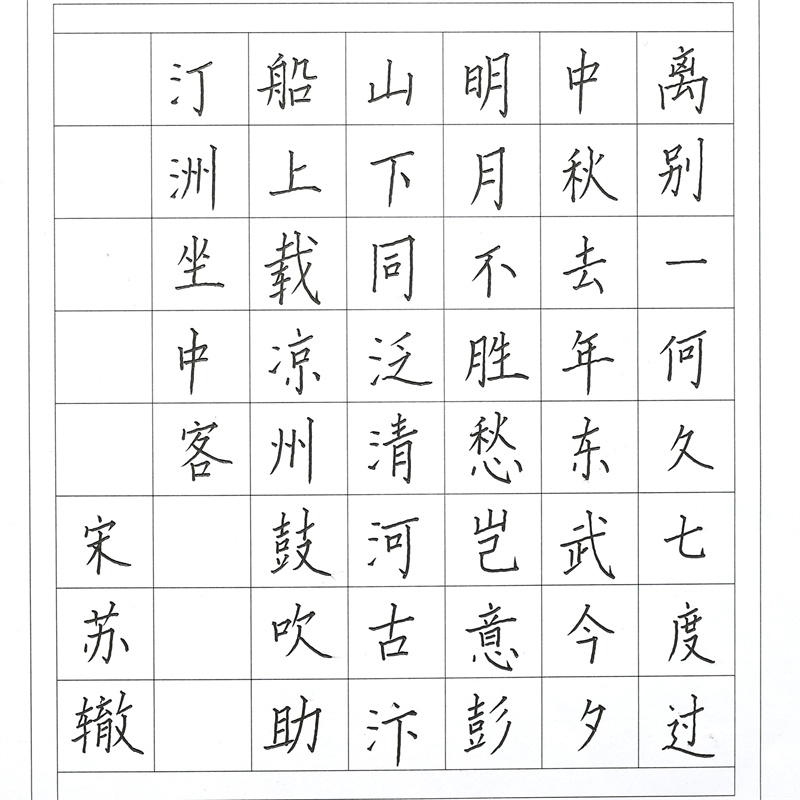 离别一何久七度过
中秋去年东武今夕
明月不胜愁岂意彭
山下同泛清河古汴
船上载凉州鼓吹助
汀洲坐中客
宋苏辙